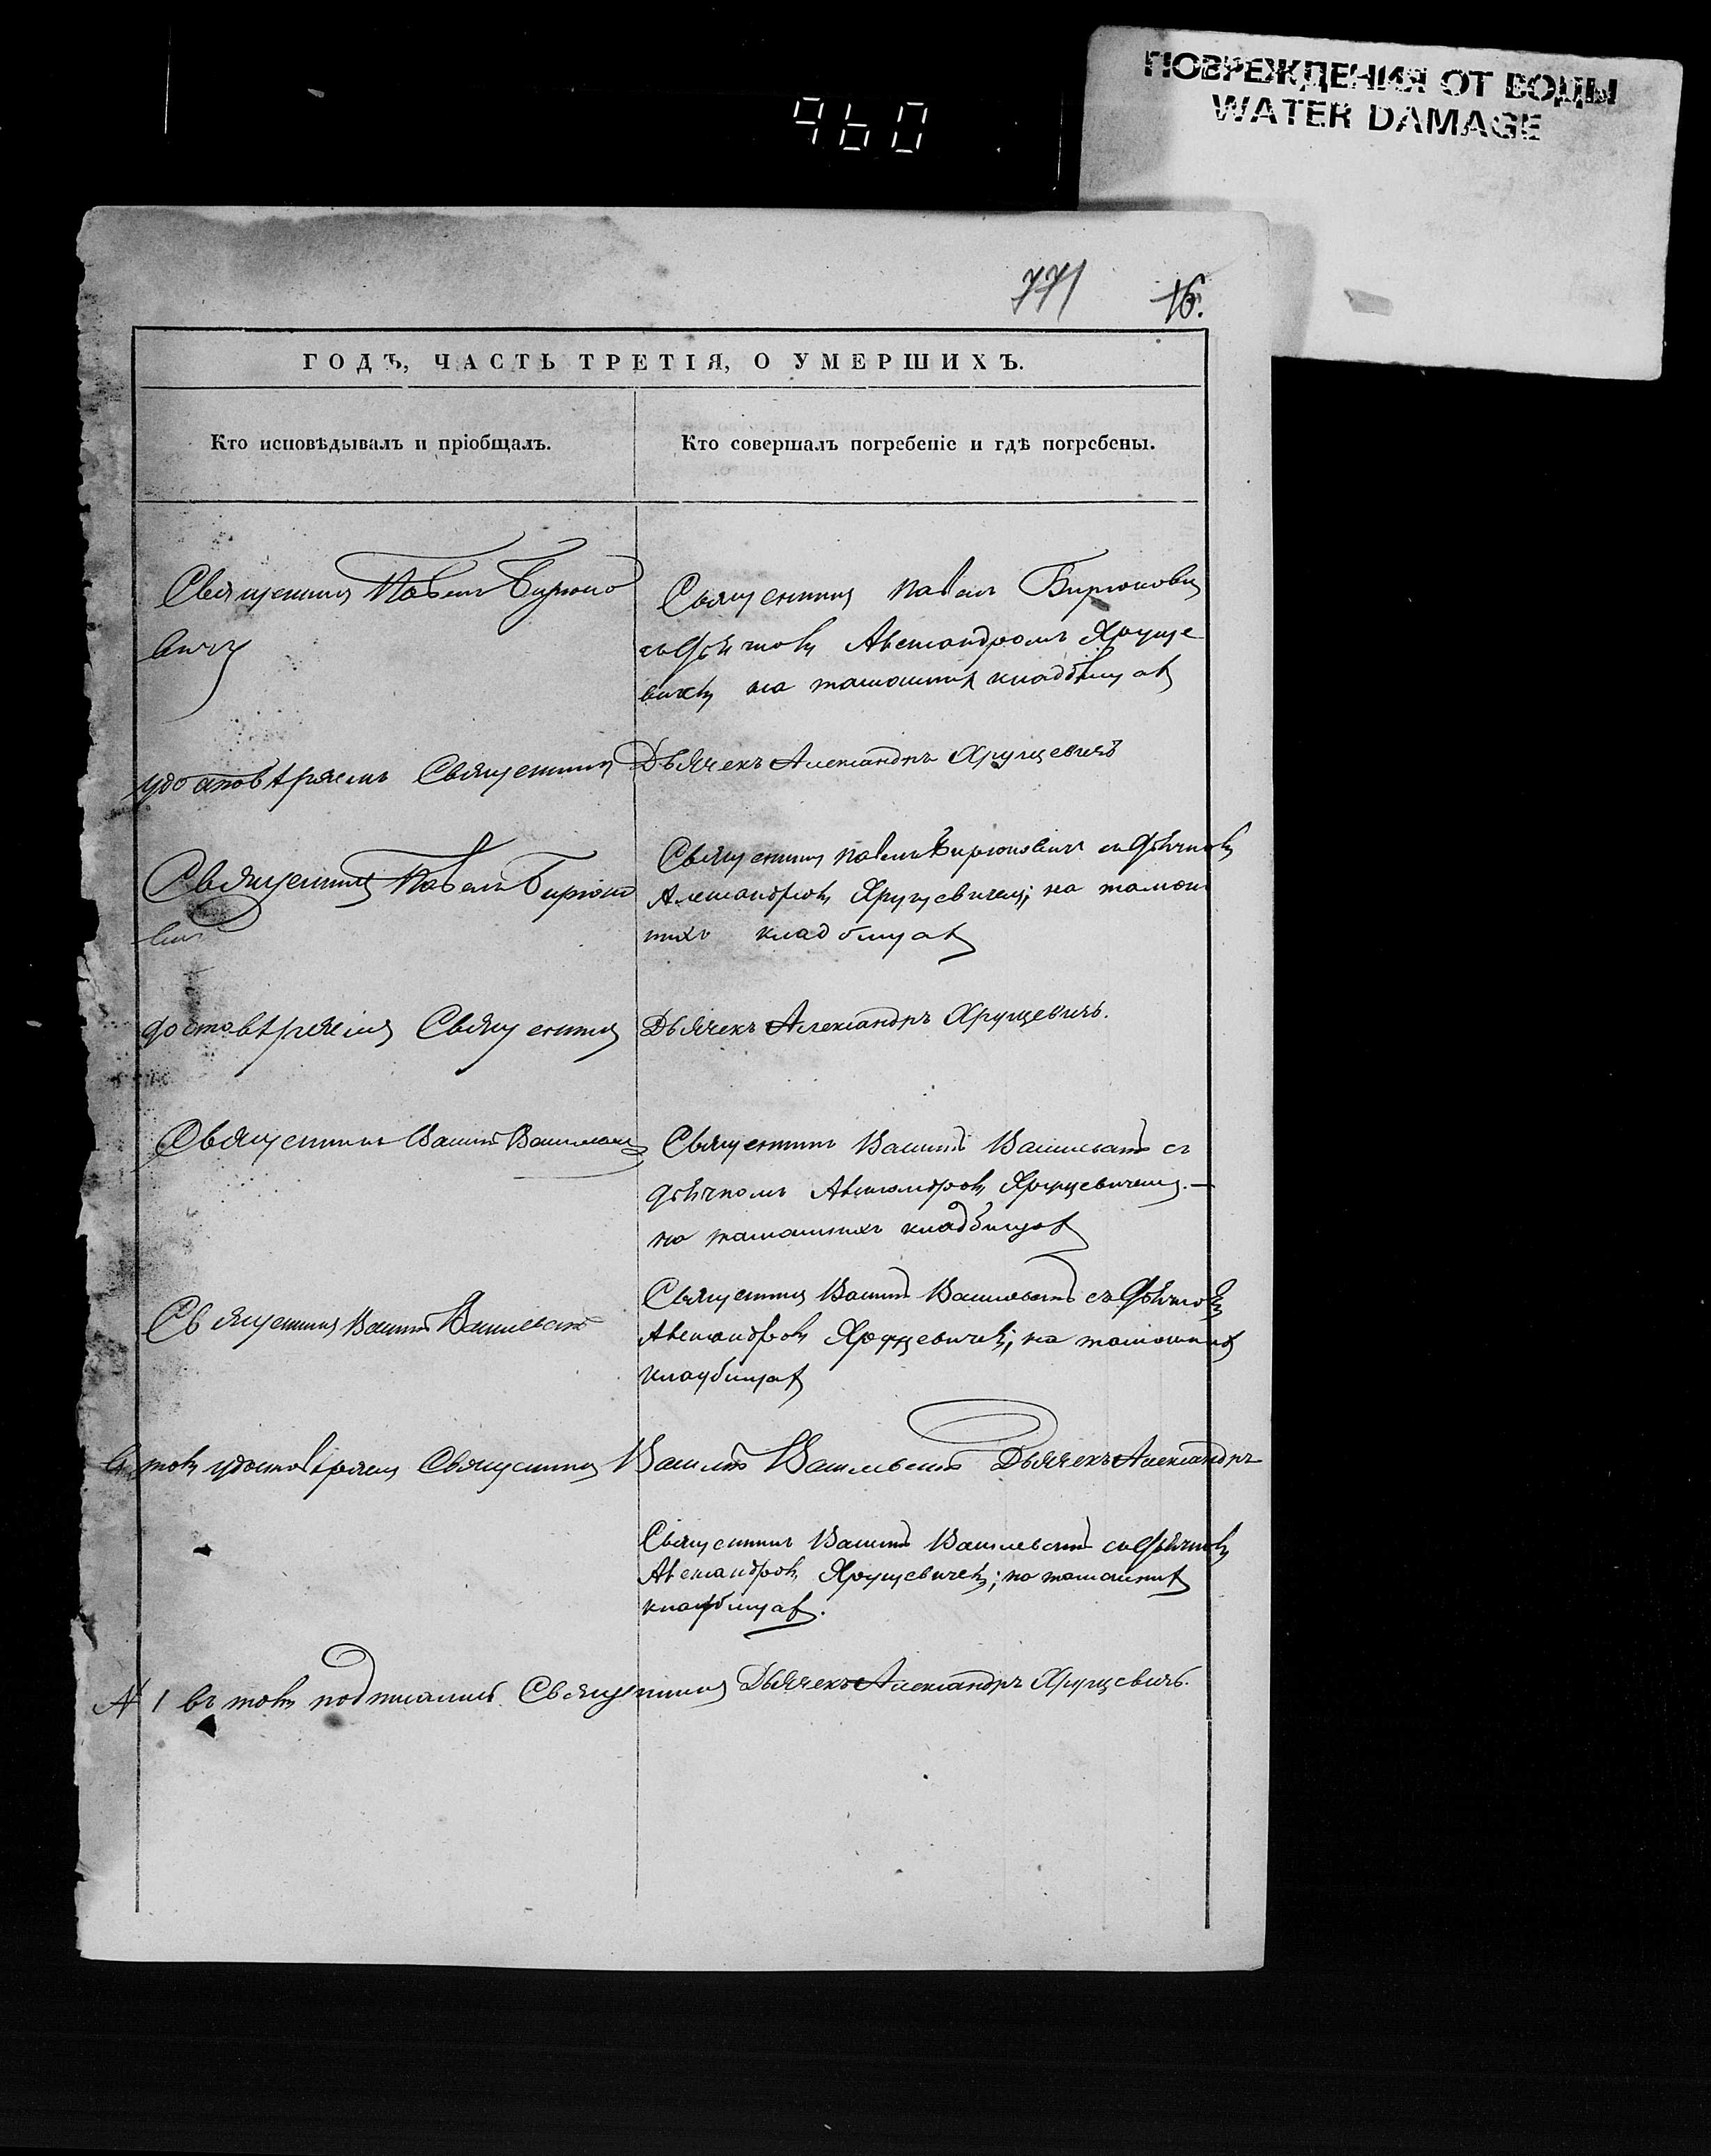 ПОВРЕЖДЕНИЯ ОТ ВОДЫ
WATER DAMAGE
960
771 16.
ГОДЪ, ЧАСТЬ ТРЕТІЯ, О УМЕРШИХЪ.
Кто исповѣдывалъ и пріобщалъ.
Кто совершалъ погребеніе и гдѣ погребены.
Священникъ Павелъ Бирюко
вичъ
Священникъ Павелъ Бирюковичъ
съ дьячкомъ Александромъ Хруце
вичемъ на тамошнихъ кладбищахъ
удостовѣряемъ Священникъ Дьячекъ Александръ Хруцевичъ
Священникъ Павелъ Бирюко
вичъ
Священникъ Павелъ Бирюковичъ съ дьячкомъ
Александромъ Хруцевичемъ; на тамош
нихъ кладбищахъ
достовѣряемъ Священникъ Дьячекъ Александръ Хруцевичъ.
Священникъ
Священникъ съ
дьячкомъ Александромъ Хруцевичемъ.—
на тамошнихъ кладбищахъ
Священникъ
Священникъ съ дьячкомъ
Александромъ Хруцевичемъ; на тамошнихъ
кладбищахъ
въ томъ удостовѣряемъ Священникъ Дьячекъ Александръ
Священникъ съ дьячкомъ
Александромъ Хруцевичемъ; на тамошнихъ
кладбищахъ.
1 въ томъ Священникъ Дьячекъ Александръ Хруцевичъ.